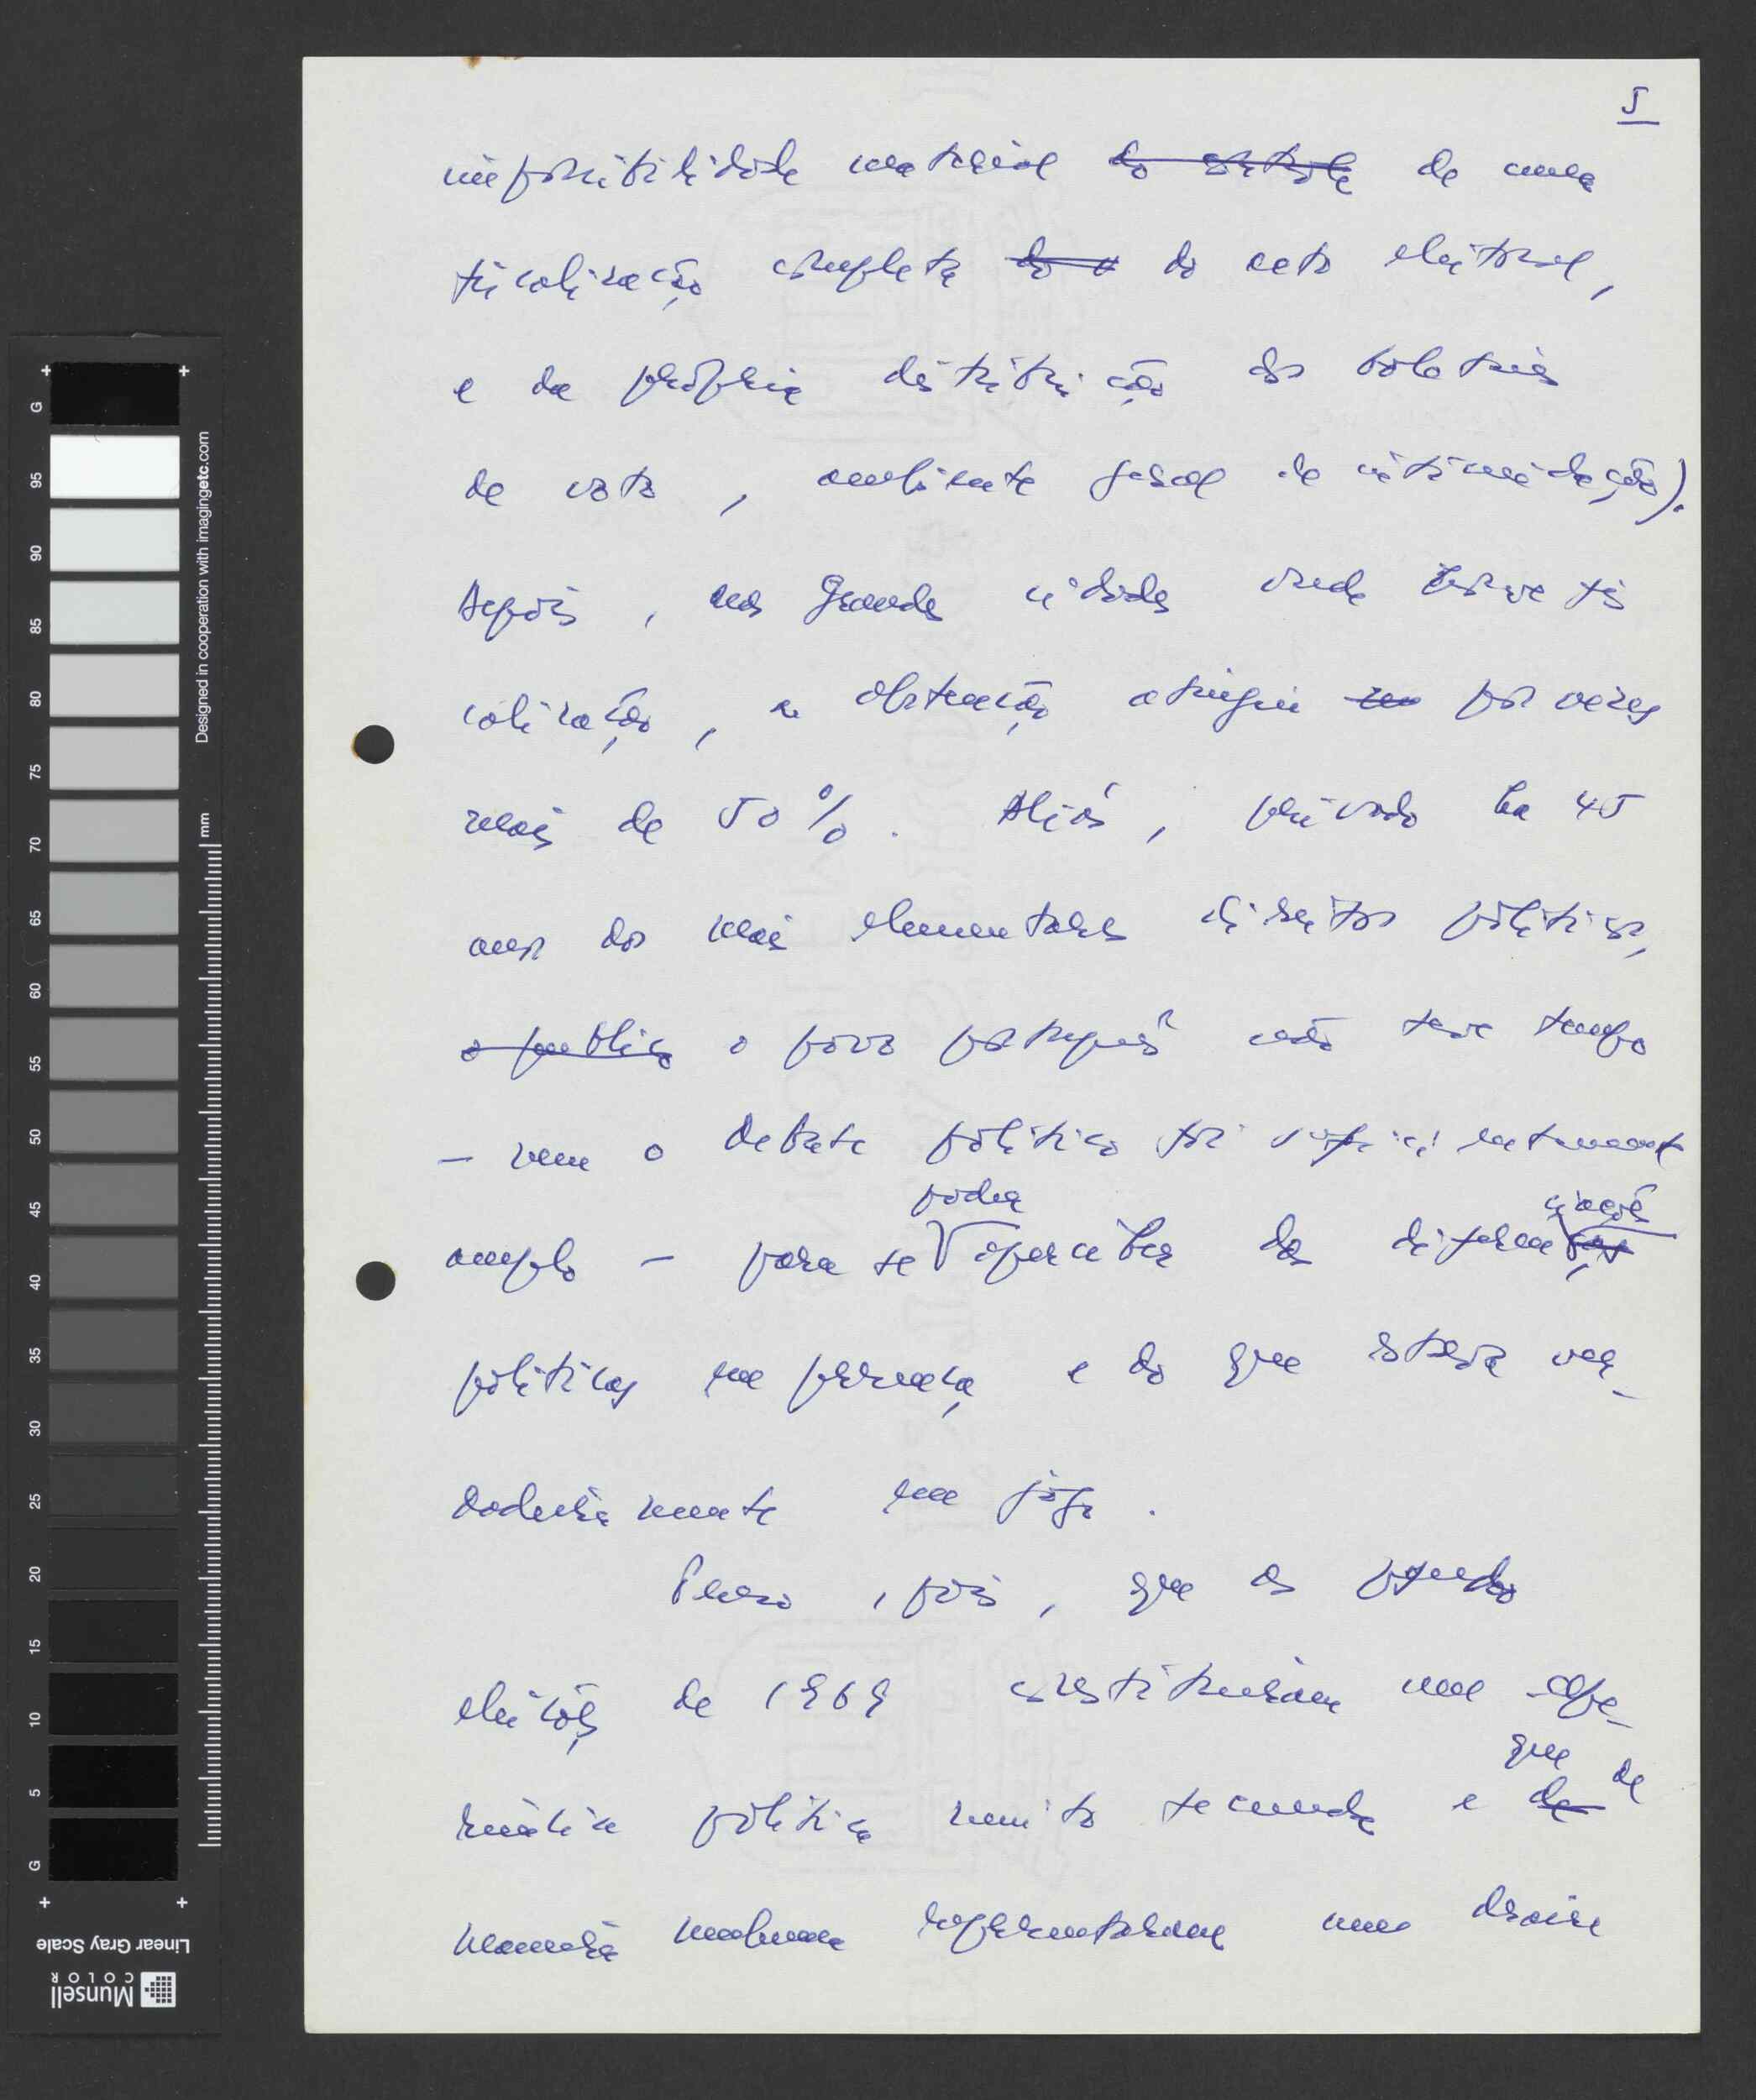 5
impossibilidade material do controle de uma
fiscalização completa do a do acto eleitoral,
e da própria distribuição dos boletins
de voto, ambiente geral de intimidação).
Depois, nas grandes cidades onde houve fis
calização, a abstenção atingiu por vezes
mais de 50%. Aliás, privado há 45
anos dos mais elementares direitos políticos,
o publico o povo português não teve tempo
– nem o debate político foi suficientemente
amplo – para se poder aperceber das diferenciações
políticas em presença e do que estava ver_
dadeiramente em jogo.
Penso, pois, que as pseudo
eleições de 1969 constituíram uma expe_
riência política muito fecunda e que de de
maneira nenhuma representaram um